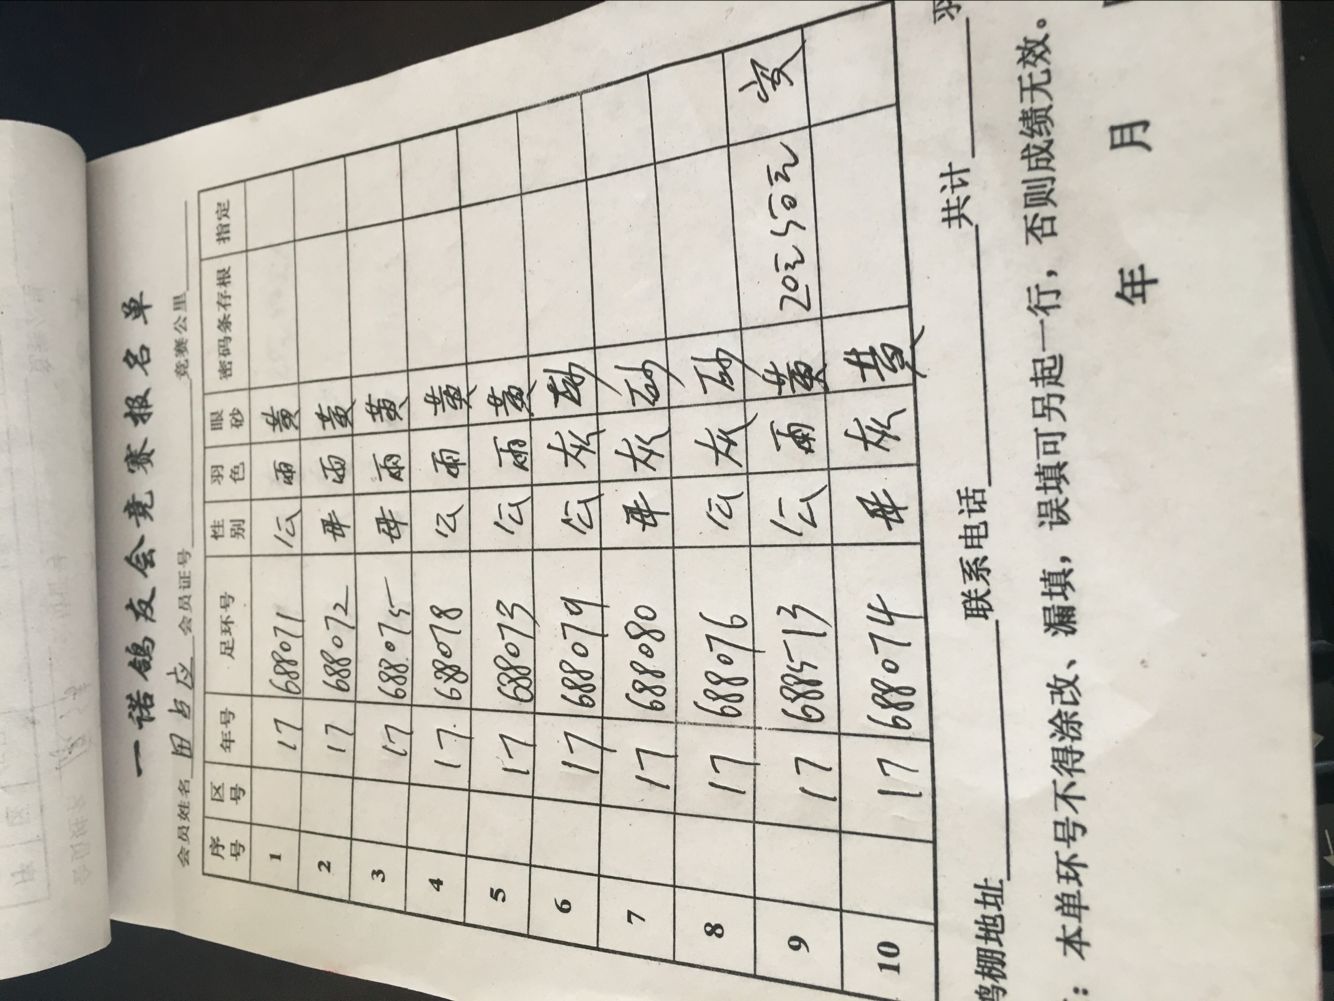 一诺鸽友会竞赛报名单
会员姓名 田占应 会员证号 竞赛公里
序号 区号 年号 足环号 性别 羽色 眼砂 密码条存根 指定
1 17 688071 公 雨 黄
2 17 688072 母 雨 黄
3 17 688075 母 雨 黄
4 17 688078 公 雨 黄
5 17 688073 公 雨 黄
6 17 688079 公 灰 砂
7 17 688080 母 灰 砂
8 17 688076 公 灰 砂
9 17 688573 公 雨 黄 20元50元
10 17 688074 母 灰 黄
鸽棚地址 联系电话 共计 羽
：本单环号不得涂改、漏填，误填可另起一行，否则成绩无效。
年 月